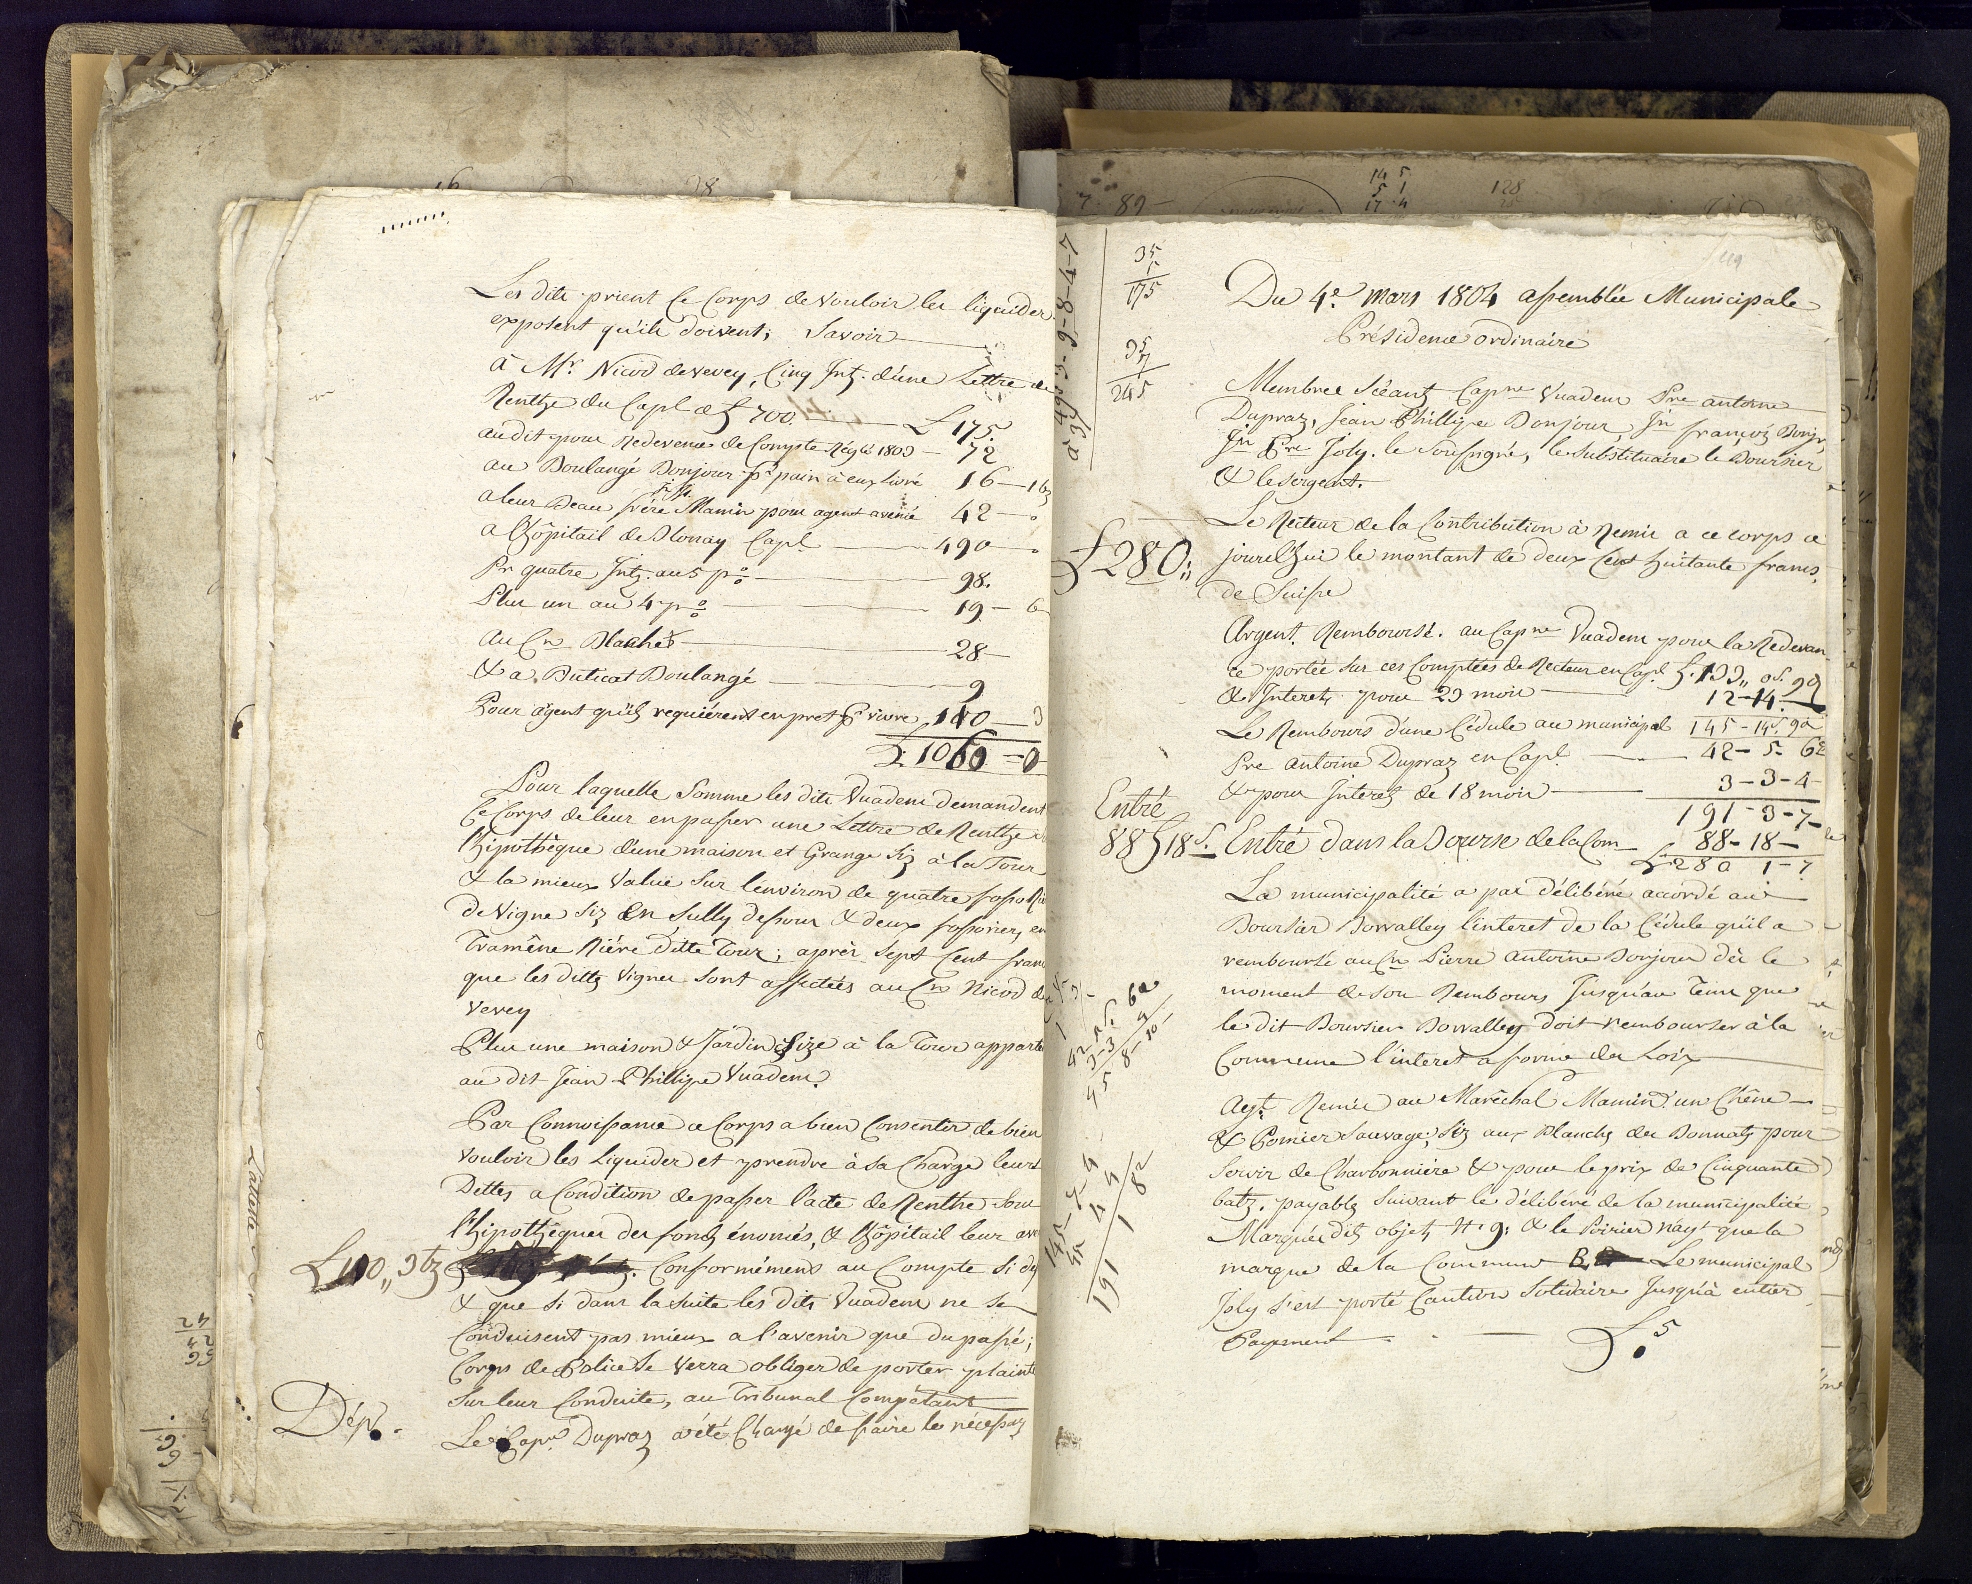 Les dits prient Ce Corps de Vouloir les liquider
exposent qu'ils doivent; Savoir
à Mr. Nicod de Vevey, Cinq Intz. d'une Lettre de
Renthe du Capl. de £ 700. £ 175.
au dit pour Redevence de Compte Réglé 1803 — 72
au Boulangé Bonjour pr. pain à eux livré 16 — 1 bz
a leur Beau frère Mamin pour agent avencé 42 — "
a l'hôpitail de Blonay Capl. 490 — "
Pr quatre Intz. au 5 p% 98.
Plus un au 4 p% 19 — 6
Au Cn Blachet 28 —
& a Buticat Boulangé 9
Pour agent qu'ils requiérent en pret pr vivre 110 — 3
£ 1060 — 0
Pour laquelle Somme les dits Vuadens demandent
Ce Corps de leur en passer une Lettre de Renthe
l'hipothèque d'une maison et Grange Siz à la Tour
& la mieux Value Sur l'environ de quatre fossoriés
de Vigne Siz En Sully dessous & deux fossoriers, en
Tramêne Riére ditte Tour; après Sept Cent francs
que les dittes Vignes Sont affectées au Cn Nicod de
Vevey
Plus une maison & Jardin Size à la Tour apparte
au dit Jean Phillipe Vuadens.
Par Connoissance ce Corps a bien Consentir de bien
Vouloir les Liquider et prendre à Sa Charge leurs
Dettes a Condition de passer l'acte de Renthe Sous
l'hipothêques des fonds énoncés, & l'hôpitail leur
£ 110,, 3 bz
Conformémens au Compte Si de
& que Si dans la Suite les dits Vuadens ne Se
Conduisent pas mieux a l'avenir que du passé;
Corps de Police Se Verra obliger de porter plainte
Sur leur Conduite, au Tribunal Compétant
Dépl.
Le Capne. Dupraz a été Chargé de faire le nécessaz
35
5
175
35
7
245
Du 4e. mars 1804 assemblée Municipale
Présidence ordinaire
Membres Séeantz Capne Vuadens Pre antoine
Dupraz, Jean Phillipe Bonjour, Jn françois Bonjr,
Jn Pre Joly. le Soussigné, le Substituaire le Boursier
& le Sergent.
£ 280:,,
Le Recteur de la Contribution à Remis a ce corps a
jourd'hui le montant de deux Cent huitante francs,
de Suisse
Argent. Remboursé. au Capne Vuadens pour la Redevan
ce portée Sur ces Comptes de Recteur en Capl. £. 133,, 0 s. 9 d
& Interets pour 23 mois 12 - 14.
Le Rembours d'une Cédule au municipal 145 - 14 s. 9 d
Pre antoine Dupraz en Capl. 42 - 5. 6 d
& pour Interets de 18 mois 3 - 3 - 4
191 - 3 - 7
Entré
88 £ 18 s.
Entré dans la Bourse de la Com 88 - 18 -
£ 280 1 - 7
La municipalité a par délibéré accordé au
Boursier Dovvalley l'interet de la Cédule qu'il a
remboursé au Cn Pierre antoine Bonjour dès le
moment de Son Rembours Jusqu'au Tems que
le dit Boursier Dovvalley doit rembourser à la
Commune l'interet a forme des Loix
Agt. Remis au Maréchal Mamin un Chêne
& Pomier Sauvage; Siz aux Planches des Bonnatz pour
Servir de Charbonniére & pour le prix de Cinquante
batz. payables Suivant le délibéré de la municipalité,
Marqués dits objets H: 9: & le Poirier nayt que la
marque de la Commune B, Le municipal
Joly s'est porté Caution Solidaire Jusqu'à entier
Payement £ 5